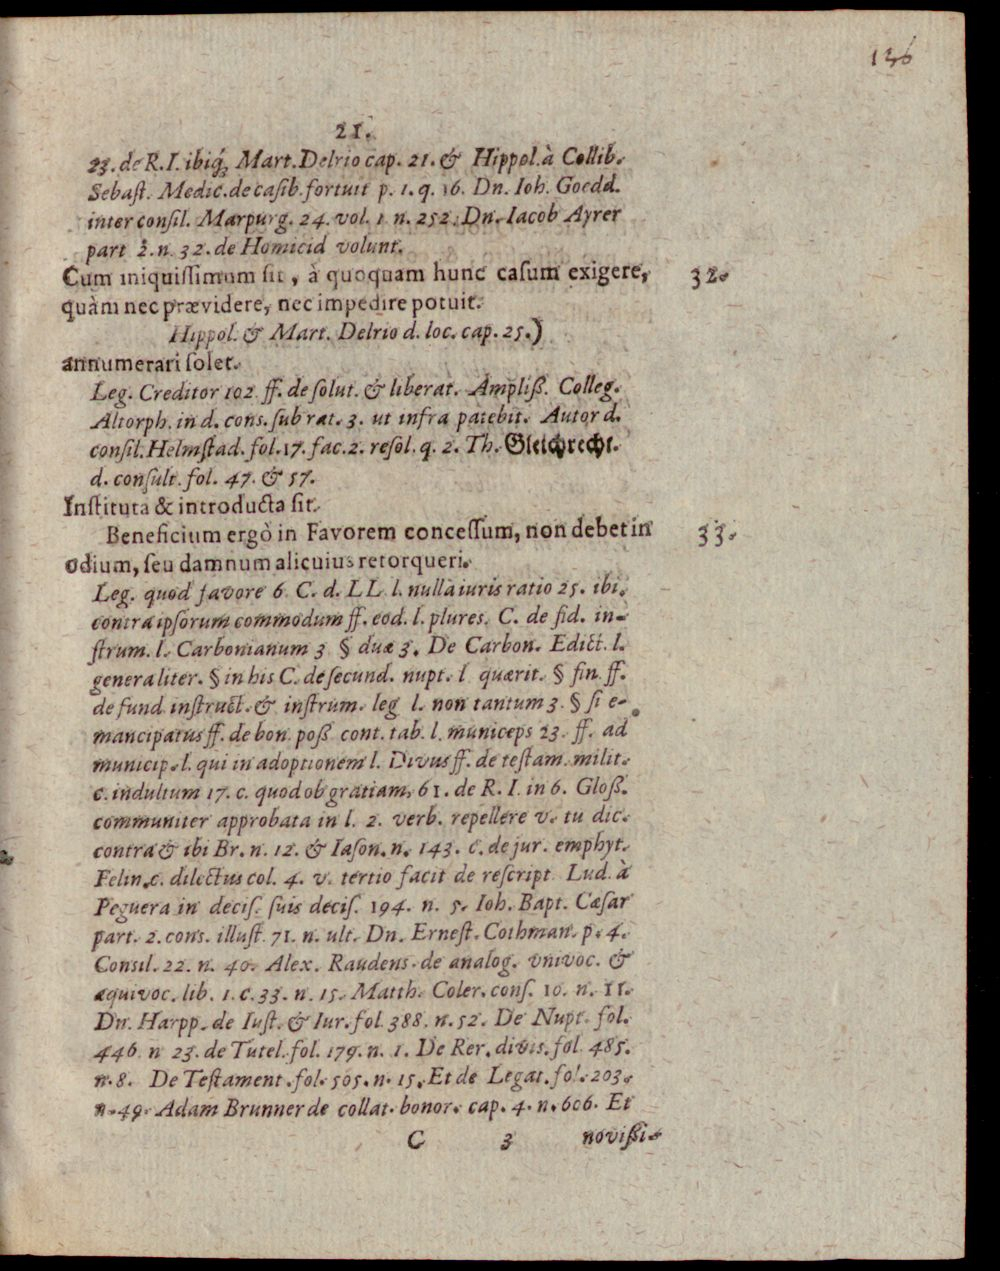 136
21.
23. de R. I. ibiq́; Mart. Delrio cap. 21. & Hippol. à Collib.
Sebaſt. Medic. de caſib. fortuit p. 1. q. 16. Dn. Ioh. Goedd.
inter conſil. Marpurg. 24. vol. 1 n. 252. Dn. Iacob Ayrer
part 2. n. 32. de Homicid volunt.
Cum iniquiſſimum ſit, à quoquam hunc caſum exigere, 32.
quàm nec prævidere, nec impedire potuit.
Hippol. & Mart. Delrio d. loc. cap. 25.)
annumerari ſolet.
Leg. Creditor 102 ff. de ſolut. & liberat. Ampliß. Colleg.
Altorph. in d. conſ. ſub rat. 3. ut infra patebit. Autor d.
conſil. Helmſtad. fol. 17. fac. 2. reſol. q. 2. Th. Gleichrecht.
d. conſult. fol. 47. & 57.
Inſtituta & introducta ſit.
Beneficium ergò in Favorem conceſſum, non debet in 33.
odium, ſeu damnum alicuius retorqueri.
Leg. quod favore 6 C. d. LL l. nulla iuris ratio 25. ibi.
contra ipſorum commodum ff. eod. l. plures. C. de fid. in-
ſtrum. l. Carbonianum 3 § duæ 3. De Carbon. Edict. l.
generaliter. § in his C. de ſecund. nupt. l quærit. § fin ff.
de fund inſtruct. & inſtrum. leg l. non tantum 3 § ſi e-
mancipatus ff. de bon. poß cont. tab. l. municeps 23. ff. ad
municip. l. qui in adoptionem l. Divus ff. de teſtam. milit.
c. indultum 17. c. quod ob gratiam, 61. de R. I. in 6. Gloß.
communiter approbata in l. 2. verb. repellere v. tu dic.
contra & ibi Br. n. 12. & Iaſon. n. 143. C. de jur. emphyt.
Felin. c. dilectus col. 4. v. tertio facit de reſcript Lud. à
Peguera in deciſ. ſuis deciſ. 194. n. 5. Ioh. Bapt. Cæſar
part. 2. conſ. illuſt. 71. n. ult. Dn. Erneſt. Cothman. p. 4.
Conſil. 22. n. 40. Alex. Raudens. de analog. vnivoc. &
æquivoc. lib. 1. c. 33. n. 15. Matth. Coler. conſ. 10. n. 11.
Dn. Harpp. de Iuſt. & Iur. fol 388. n. 52. De Nupt. fol.
446 n 23. de Tutel. fol. 179. n. 1. De Rer. divis. fol 485.
n. 8. De Teſtament. fol. 505. n. 15. Et de Legat. fol. 203.
n. 49. Adam Brunner de collat. bonor. cap. 4. n. 606. Et
C 3 novißi-